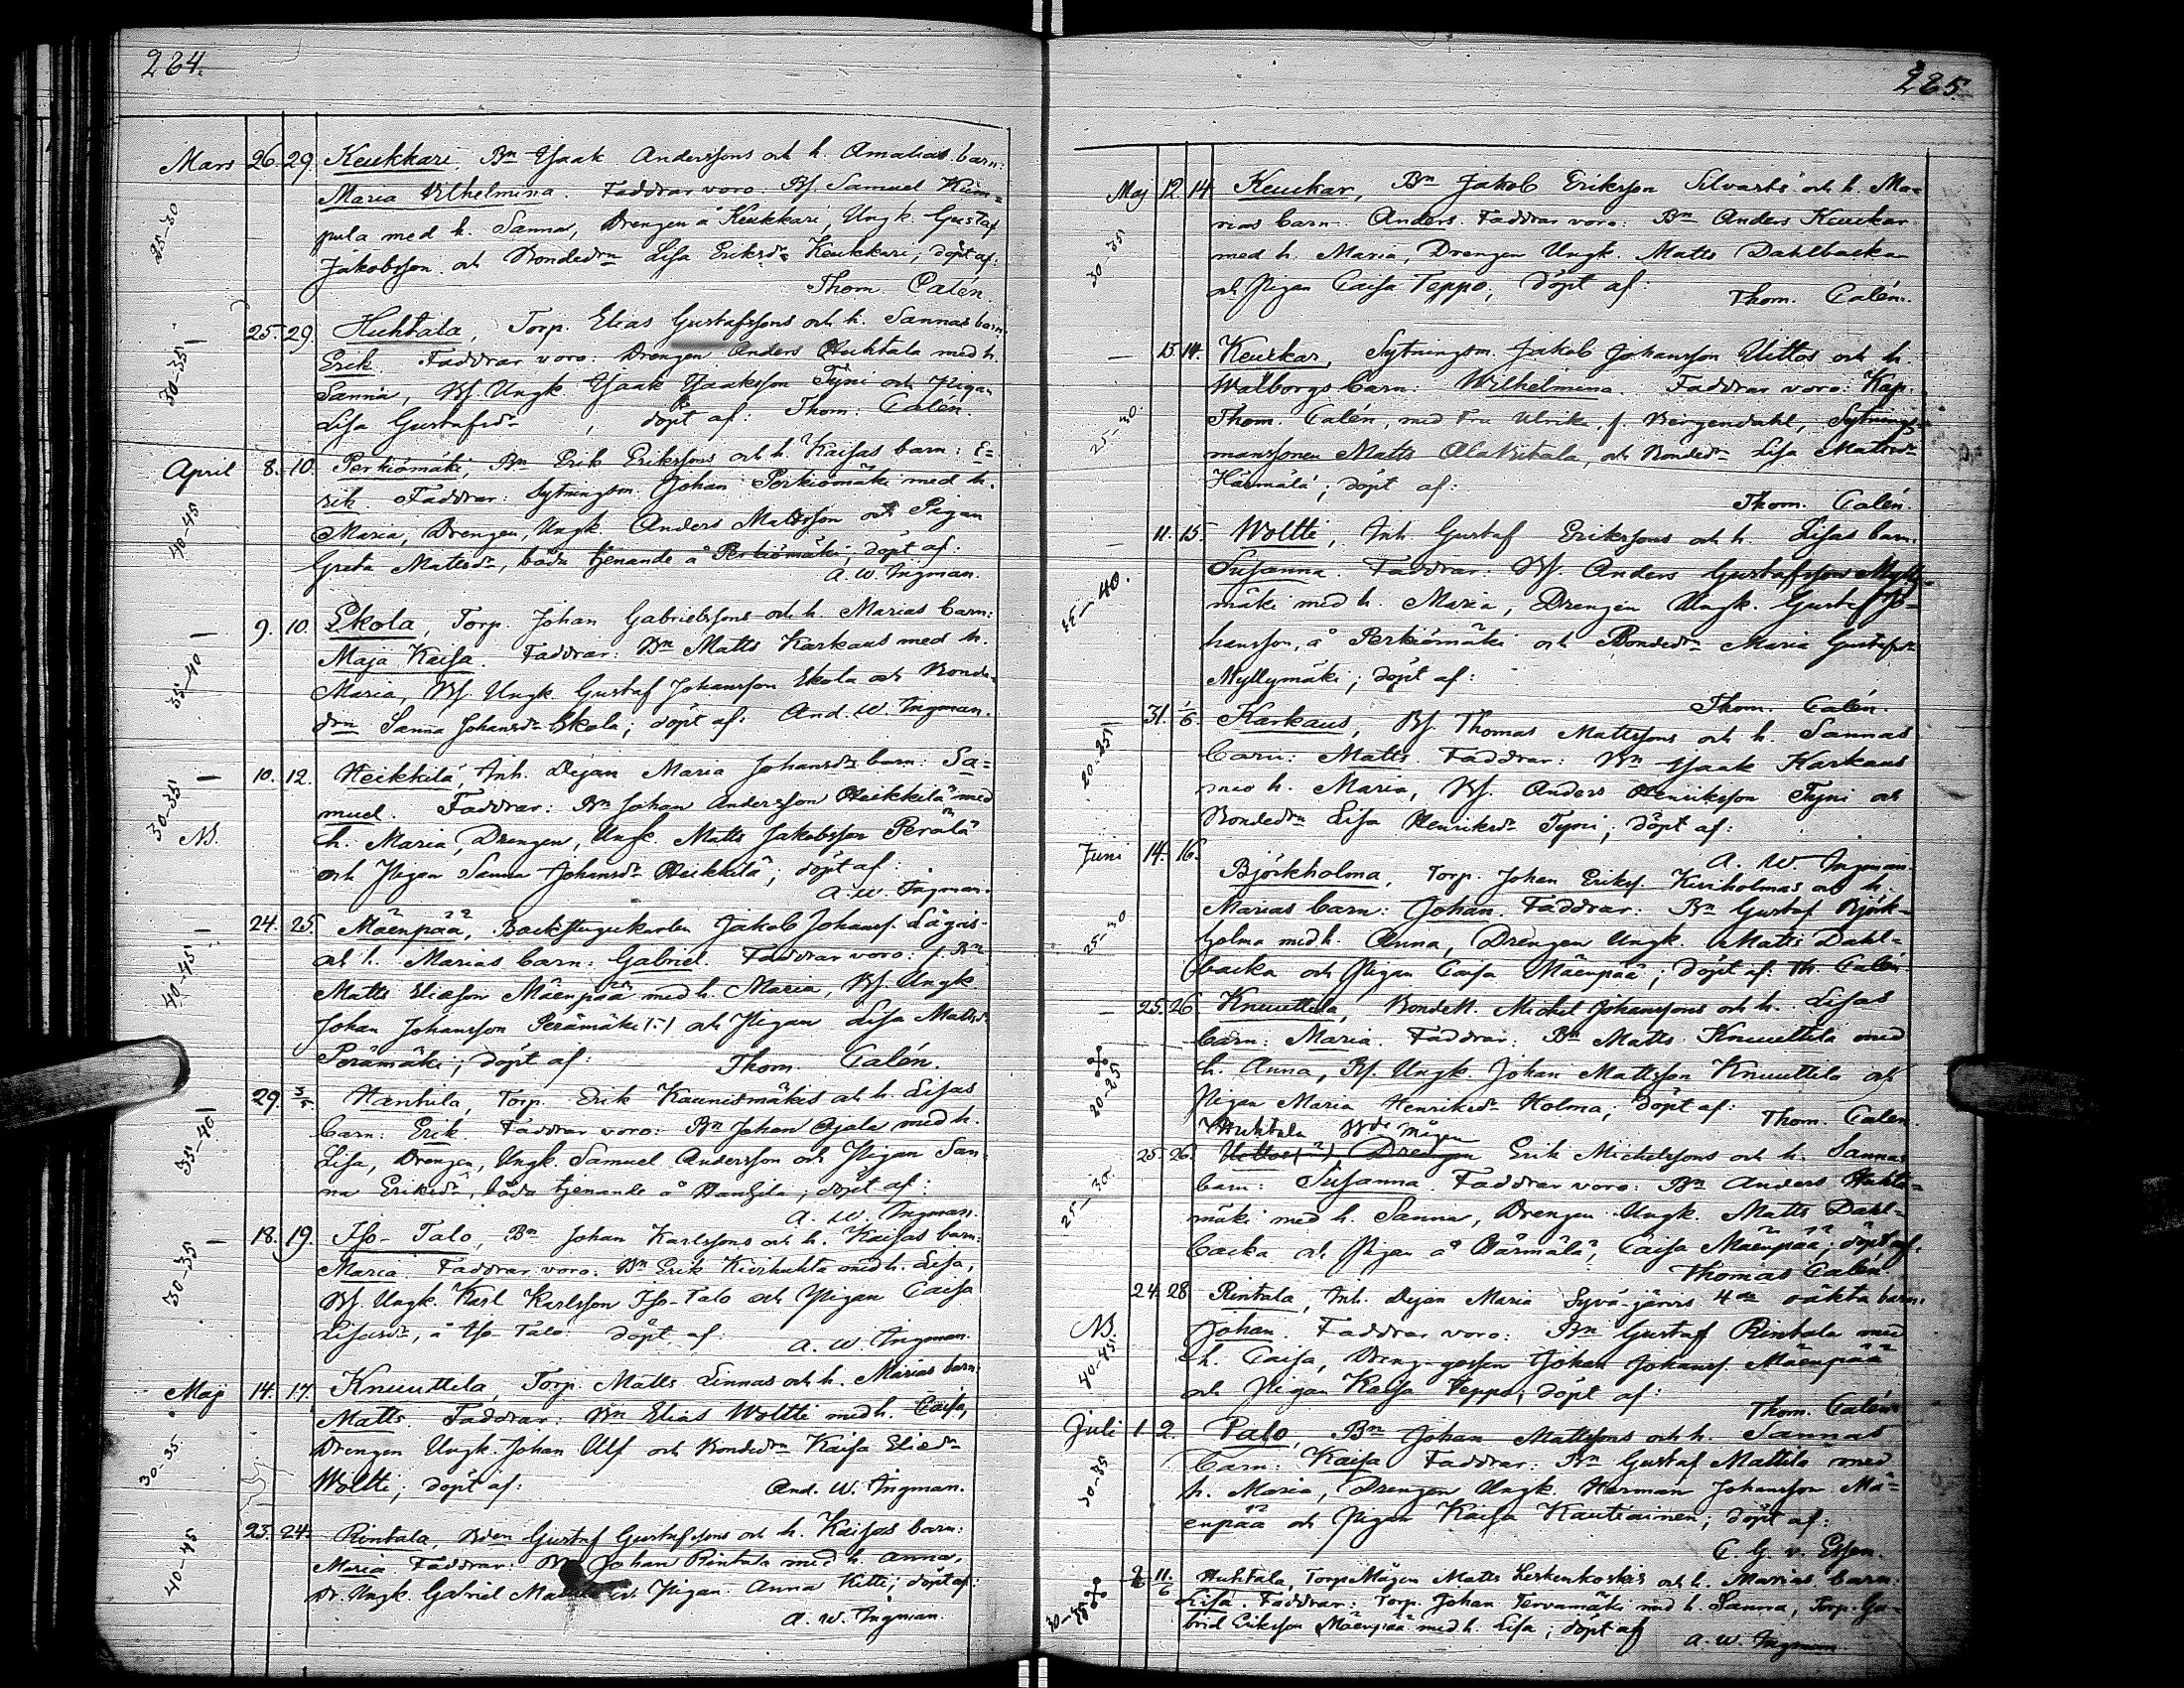 224.
Mars 26. 29. Keukkari, Bn Isaak Anderssons och h. Amalias barn:
Maria Vilhelmina. Faddrar voro: Bs. Samuel Kum=
pula med h. Sanna, Drengen å Keukkari, Ungk. Gustaf
25-30
Jakobsson och Bondedrn Lisa Eriksdr Keukkari, döpt af:
Thom. Calén.
25. 29. Huhtala, Torp. Elias Gustafssons och h. Sannas barn:
30-35
Erik. Faddrar voro: Drengen Anders Huhtala med h.
Sanna, Bs. Ungk. Isaak Isaaksson Tyni och Pigan
Lisa Gustafsdr , döpt af: Thom: Calén.
April 8. 10. Perkiömäki, Bn Erik Erikssons och h. Kaisas barn: E=
rik. Faddrar: Sytningsm. Johan Perkiömäki med h.
40-45
Maria, Drengen, Ungk. Anders Mattsson och Pigan
Greta Mattsdr, båda tjenande å Perkiömäki; döpt af:
A. W. Ingman.
9. 10. Ekola, Torp. Johan Gabrielssons och h. Marias barn:
Maja Kaisa. Faddrar: Bn Matts Karkaus med h.
35-40
Maria, Bs. Ungk. Gustaf Johansson Ekola och Bonde-
drn Sanna Johansdr Ekola; döpt af: And. W. Ingman.
10. 12. Heikkilä, Inh. Pigan Maria Johansdrs barn: Sa=
30-35
muel. Faddrar: Bn Johan Andersson Heikkilä med
NB.
h. Maria, Drengen, Ungk. Matts Jakobsson Perälä
och Pigan Sanna Johansdr Heikkilä; döpt af:
A. W. Ingman.
24. 25. Mäenpää, Backstugukarlen Jakob Johanss. Lågas
och h. Marias barn: Gabriel. Faddrar voro: f. Bn
40-45
Matts Eliasson Mäenpää med h. Maria, Bs. Ungk.
Johan Johansson Perämäki (?) och Pigan Lisa Mattsdr
Perämäki; döpt af: Thom. Calén.
29. 3/5. Hanhila, Torp. Erik Kaunismäkis och h. Lisas
barn: Erik. Faddrar voro: Bn Johan Ojala med h.
35-40
Lisa, Drengen, Ungk. Samuel Andersson och Pigan San-
na Eriksdr, båda tjenande å Hanhila; döpt af:
A. W. Ingman.
18. 19. Iso-Talo, Bn Johan Karlssons och h. Kaisas barn:
Maria. Faddrar voro: Bn Erik Kiviluhta med h. Lisa,
30-35
Bs. Ungk. Karl Karlsson Iso-Talo och Pigan Caisa
Lisasdr, å Iso-Talo: döpt af: A. W. Ingman.
Maj 14. 17. Knuuttila, Torp. Matts Linnas och h. Marias barn:
Matts. Faddrar: Bn Elias Woltti med h. Caisa,
30-35.
Drengen Ungk. Johan Ulf och Bondedrn Kaisa Eliedr
Woltti; döpt af: And. W. Ingman.
23. 24. Rintala, Bden Gustaf Gustafssons och h. Kaisas barn:
Maria. Faddrar: Bn Johan Rintala med h. Anna,
40-45
Dr. Ungk. Gabriel och Pigan Anna Kitti; döpt af:
A. W. Ingman.
225.
Maj 12. 14. Keuckar, Bn Jakob Eriksson Silvasts och h. Ma=
rias barn: Anders. Faddrar voro: Bn Anders Keuckar
30-35
med h. Maria, Drengen Ungk. Matts Dahlbacka
och Pigan Caisa Teppo; döpt af: Thom. Calén.
13. 14. Keuckar, Sytningsm. Jakob Johansson Uittos och h.
Walborgs barn: Wilhelmina. Faddrar voro: Kap.
25-30.
Thom. Calén, med Fru Ulrika, f. Bergendahl, Sytnings-
manssonen Matts Alaknitala, och Bondedr Lisa Mattsdr
Härmälä; döpt af:
Thom. Calén.
11. 15. Woltti, Inh. Gustaf Erikssons och h. Lisas barn:
Susanna. Faddrar: Bs. Anders Gustafsson Mylly-
35-40.
mäki med h. Maria, Drengen Ungk. Gustaf Jo-
hansson, å Perkiömäki och Bondedrn Maria Gustafsdr
Myllymäki; döpt af:
Thom. Calén.
31. 1/6. Karkaus, Bs. Thomas Mattssons och h. Sannas
20-25
barn: Matts. Faddrar: Bn Isaak Karkaus
med h. Maria, Bs. Anders Henriksson Tyni och
Bondedrn Lisa Henriksdr Tyni; döpt af:
A. W. Ingman.
Juni 14. 16. Björkholma, Torp. Johan Erikss. Kiviholmas och h.
Marias barn: Johan. Faddrar: Bn Gustaf Björk-
25-30
holma med h. Anna, Drengen Ungk. Matts Dahl-
backa och Pigan Caisa Mäenpää; döpt af: Th. Calén.
25. 26. Knuuttila, Bondem. Mickel Johanssons och h. Lisas
barn: Maria. Faddrar: Bn Matts Knuuttila med
20-25
h. Anna, Bs. Ungk. Johan Mattsson Knuuttila och
Pigan Maria Henriksdr Holma; döpt af: Thom. Calen.
Huhtala Bde Mågen
25. 26. Uittos (?), Drengen Erik Michelssons och h. Sannas
barn: Susanna. Faddrar voro: Bn Anders Huhta-
25-30.
mäki med h. Sanna, Drengen Ungk. Matts Dahl-
backa och Pigan å Härmälä, Caisa Mäenpää; döpt af.
Thomas Calén.
24. 28. Rintala, Inh. Pigan Maria Syväjärvis 4de oäkta barn:
NB.
Johan. Faddrar voro: Bn Gustaf Rintala med
40-45.
h. Caisa, Dreng-gossen Johan Johanss. Mäenpää
och Pigan Kaisa Teppo; döpt af:
Thom. Calén.
Juli 1. 2. Palo, Bn Johan Mattssons och h. Sannas
barn: Kaisa. Faddrar: Bn Gustaf Mattila med
30-35
h. Maria, Drengen Ungk. Herman Johansson Mä-
enpää och Pigan Kaisa Kautiainen; döpt af:
C. G. v. Essen.
2/6 11/6 Huhtala, Torp.Mågen Matts Leskenkoskis och h. Marias barn:
30-35
Lisa. Faddrar: Torp. Johan Tervamäki med h. Sanna, Torp. Ga-
briel Eriksson Mäenpää med h. Lisa; döpt af
A. W. Ingman.